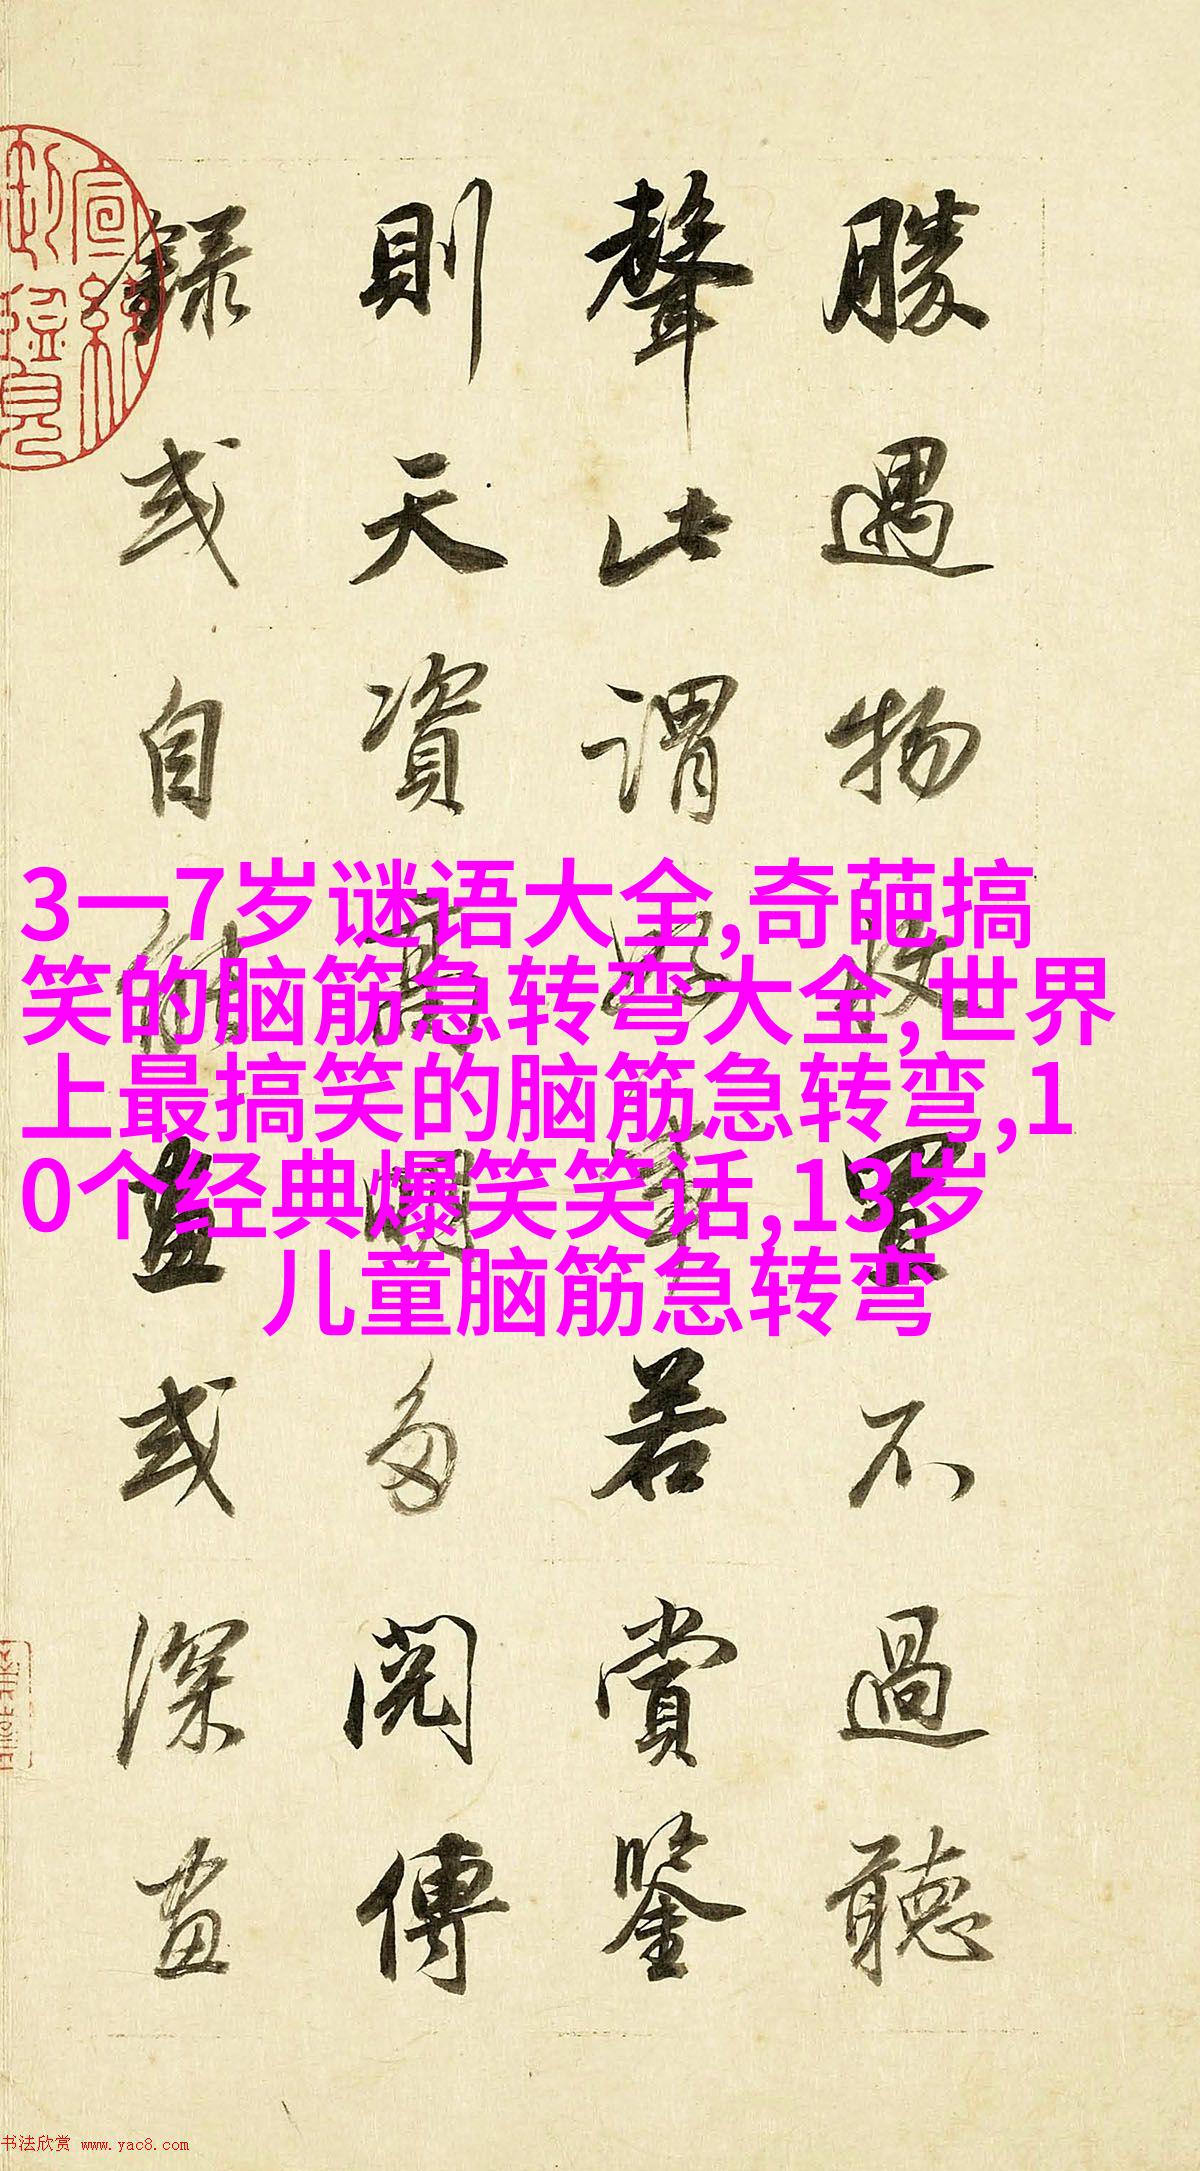 勝遇物收置不過聽
聲此謂好事若賞鑒
則天資高明多閱傳
錄或自能畫或深畫
宣統
御覽
3一7岁谜语大全,奇葩搞
笑的脑筋急转弯大全,世界
上最搞笑的脑筋急转弯,1
0个经典爆笑笑话,13岁
儿童脑筋急转弯
书法欣赏 www.yac8.com